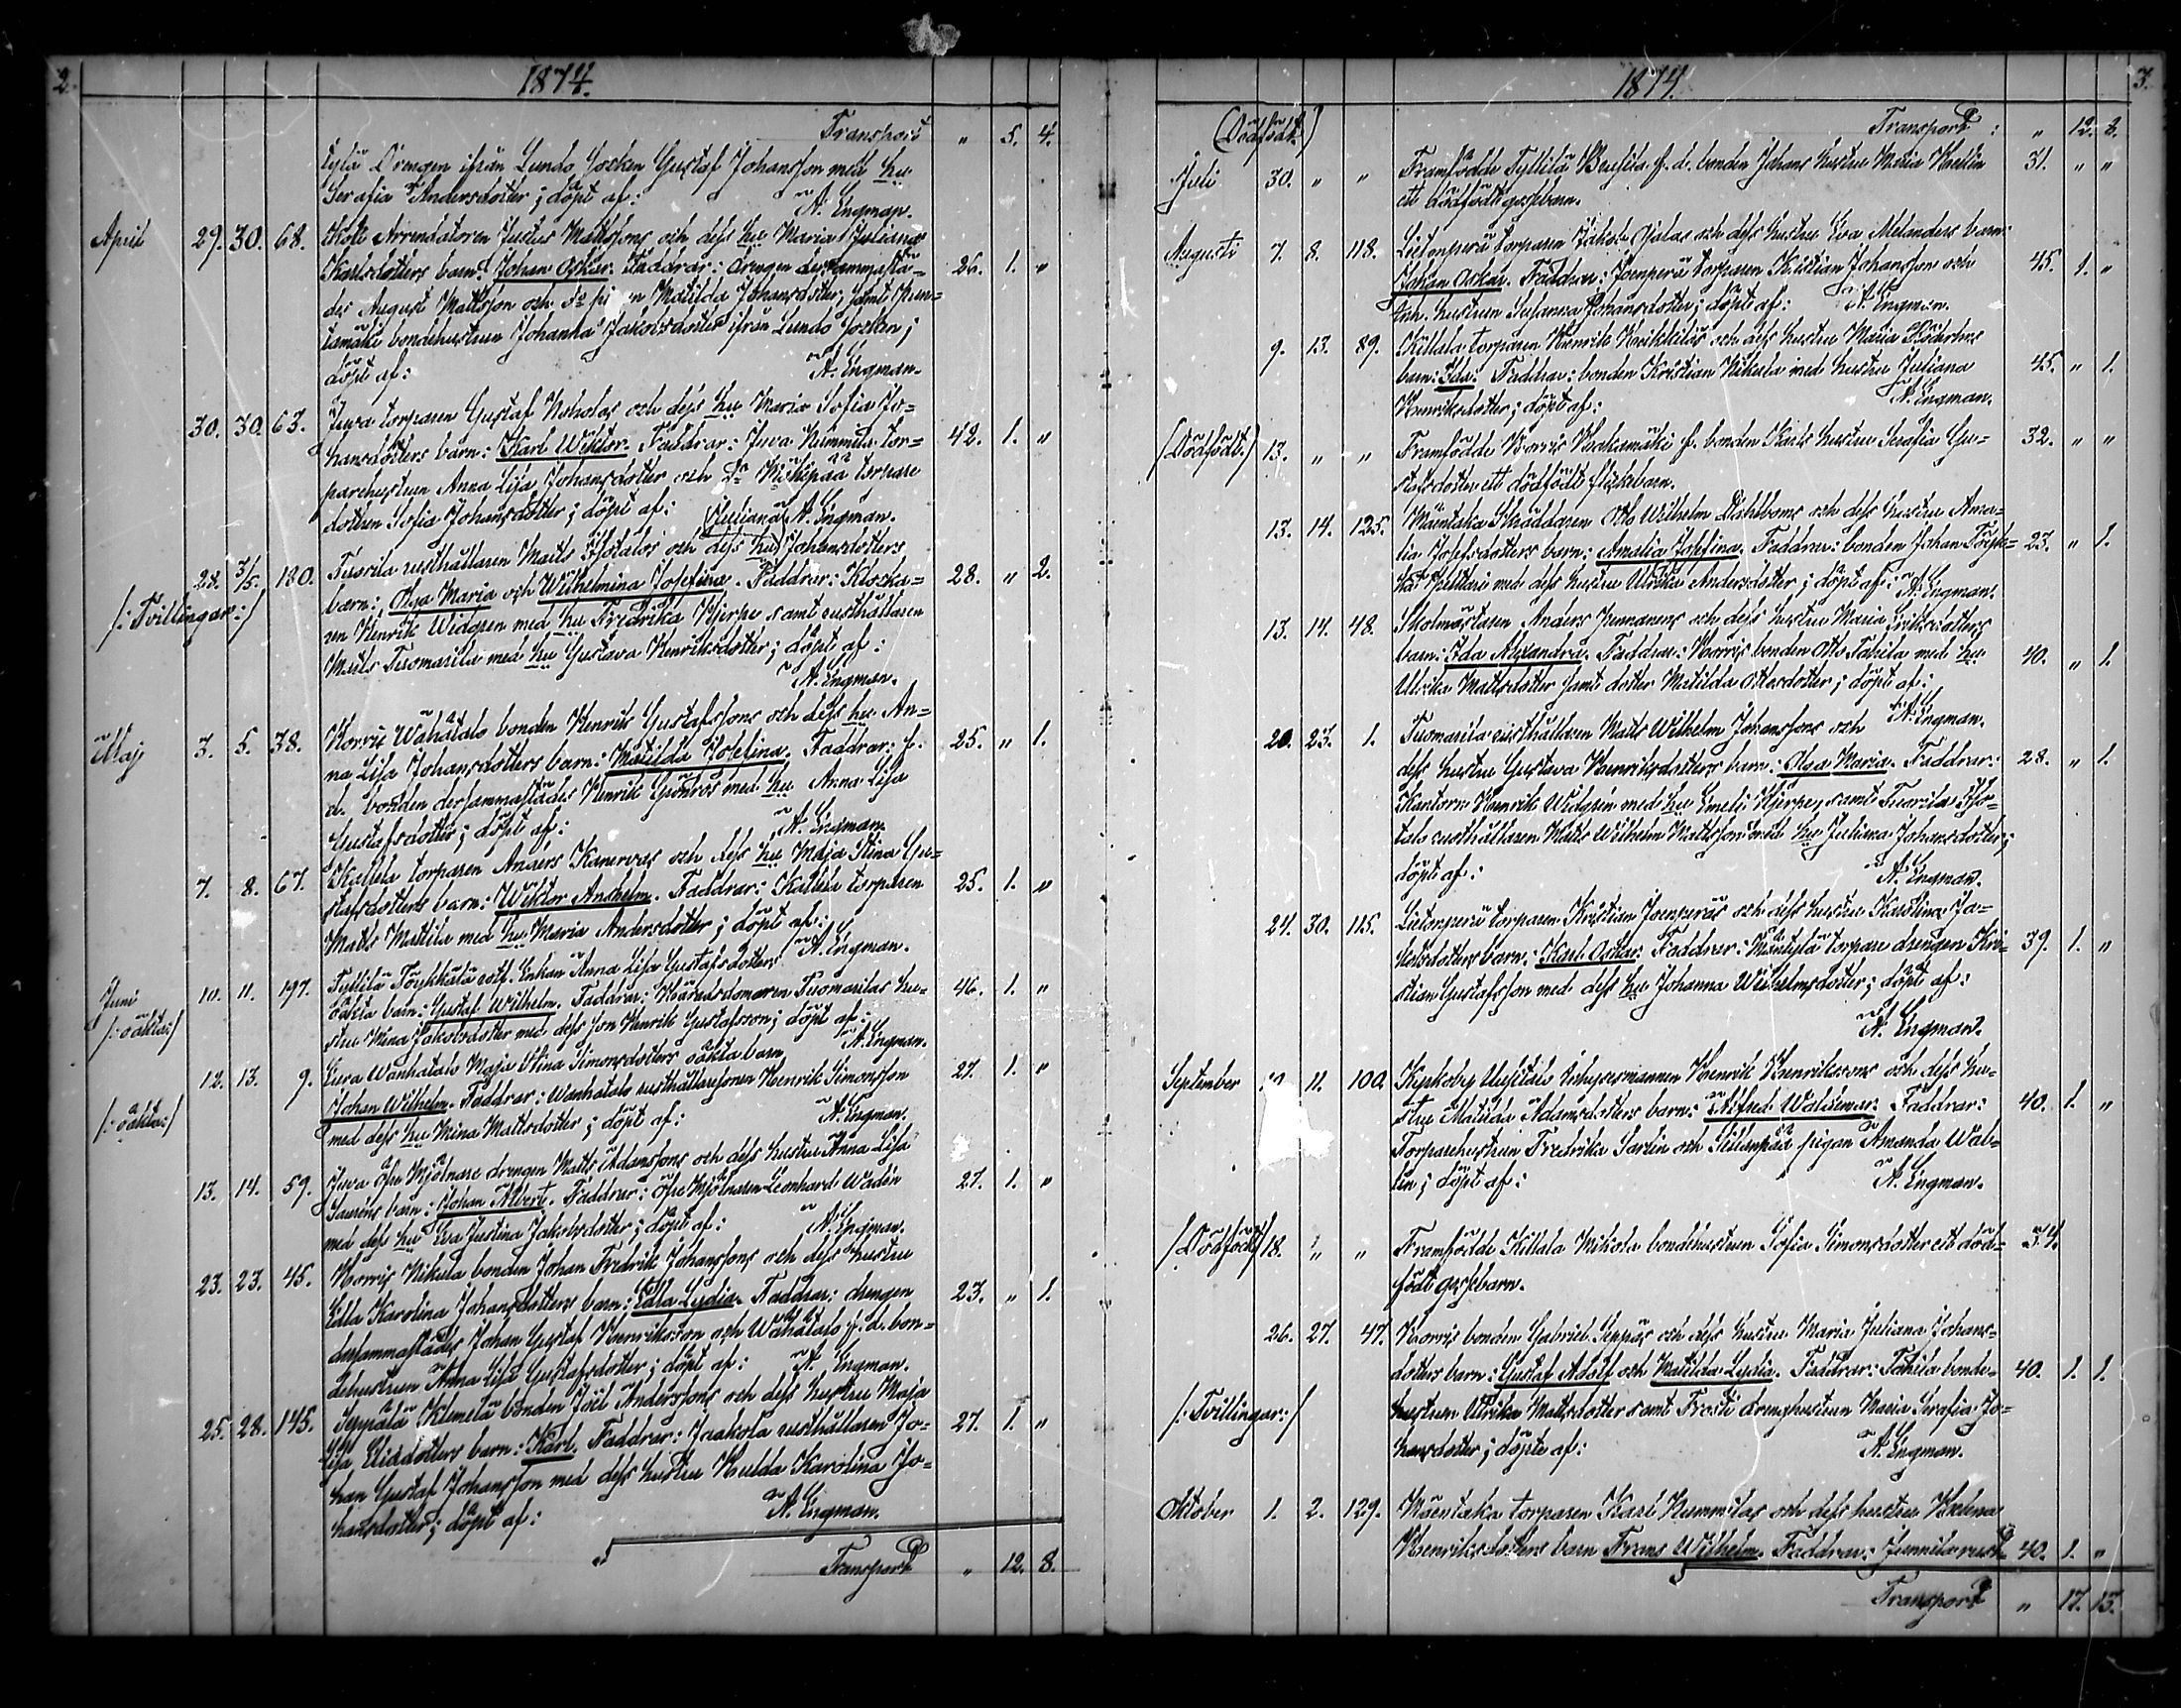 2.
1874.
Transport " 5. 4.
kylä Drengen ifrån Lundo Socken Gustaf Johansson med hu
Serafia Andersdotter; döpt af: A. Engman.
April 29. 30. 68. Arrendatoren Justus Mattssons och dess hu Maria Juliana
Karlsdotters barn: Johan Oskar. Faddrar: drengen dersammastä- 26. 1. "
des August Mattsson och Matilda Johansdotter, samt
bondehustrun Johanna Jakobsdotter ifrån Lundo Socken;
döpt af: A. Engman.
30. 30. 63. Juva torparen Gustaf och dess hu Maria Sofia Jo-
hansdotters barn: Karl Wiktor. Faddrar: Juva Nummila tor- 42. 1. "
parehustrun Anna Lisa Johansdotter och Do torpare
dottren Sofia Johansdotter; döpt af: A. Engman.
(Juliana)
28. 3/5. 180. Tuorila rusthållaren Matts och dess hu Johansdotters
barn: Olga Maria och Wilhelmina Josefina. Faddrar: Klocka- 28. " 2.
/: Tvillingar :/
ren Henrik Widgren med hu Fredrika Hjerpe samt rusthållaren
Matts Tuomarila med hu Gustava Henriksdotter; döpt af:
A. Engman.
Maj 3. 5. 38. Korvis Wähätalo bonden Henrik Gustafssons och dess hu An-
na Lisa Johansdotters barn: Matilda Josefina. Faddrar: f. 25. " 1.
d. bonden dersammastädes Henrik Grönroos med hu Anna Lisa
Gustafsdotter; döpt af: A. Engman.
7. 8. 67. Kallela torparen Anders Kanervas och dess hu Maja Stina Gu-
stafsdotters barn: Wiktor Anshelm. Faddrar: Kallela torparen 25. 1. "
Matts Mattila med hu Maria Andersdotter; döpt af:
A. Engman.
Juni 10. 11. 197. Tyllilä Töykkälä Enkan Anna Lisa Gustafsdotters
/: oäkta :/ oäkta barn: Gustaf Wilhelm. Faddrar: Häradsdomaren Tuomarilas hu- 46. 1. "
stru Mina Jakobsdotter med dess son Henrik Gustafsson; döpt af:
A. Engman.
12. 13. 9. Wanhatalo Maja Stina Simonsdotters oäkta barn 27. 1. "
/: oäkta :/ Johan Wilhelm. Faddrar: Wanhatalo rusthållaresonen Henrik Simonsson
med dess hu Mina Mattsdotter; döpt af: A. Engman.
13. 14. 59. Juva öfre Mjölnare drengen Matts Adamssons och dess hustru Anna Lisa
Sauréns barn: Johan Albert. Faddrar: öfre Mjölnaren Leonhard Wadén 27. 1. "
med dess hu Eva Justina Jakobsdotter; döpt af: A. Engman.
23. 23. 45. Korvis Nikula bonden Johan Fredrik Johanssons och dess hustru
Edla Karolina Johansdotters barn: Edla Lydia. Faddrar: drengen 23. " 1.
dersammastädes Johan Gustaf Henriksson och Wähätalo f. d. bon-
dehustrun Anna Lisa Gustafsdotter; döpt af: A. Engman.
25. 28. 145. Seppälä Klemelä bonden Joel Anderssons och dess hustru Maja
Lisa Eliedotters barn: Karl. Faddrar: Jaakola rusthållaren Jo- 27. 1. "
han Gustaf Johansson med dess hustru Hulda Karolina Jo-
hansdotter; döpt af: A. Engman.
Transport " 12. 8.
1874.
3.
(Dödfödt) Transport: " 12. 8.
Juli 30. " " Framfödde Tyllilä f. d. bonden Johans hustru Maria 31. " "
ett dödfödt gossebarn.
Augusti 7. 8. 118. Lietonperä torparen Jakob Ojalas och dess hustru Eva Melanders barn:
Johan Oskar. Faddrar: Joenperä torparen Kristian Johansson och 45. 1. "
hustrun Susanna Johansdotter; döpt af: A. Engman.
9. 13. 89. Killala torparen Henrik Heikkiläs och dess hustru Maria
barn: Ida. Faddrar: bonden Kristian Nikula med hustru Juliana 45. " 1.
Henriksdotter; döpt af: A. Engman.
/Dödfödt./ 13. " " Framfödde Korvis f. bonden Karls hustru Serafia Gu- 32. " "
stafsdotter ett dödfödt flickebarn.
13. 14. 125. Mäentaka Skräddaren Otto Wilhelm Dahlboms och dess hustru Ama-
lia Josefsdotters barn: Amalia Josefina. Faddrar: bonden Johan 23. " 1.
med dess hustru Ulrika Andersdotter; döpt af: A. Engman.
13. 14. 48. Skolmästaren Anders Hennanens och dess hustru Maria Eriksdotters
barn: Ida Alexandra. Faddrar: Korvis bonden Otto Tahila med hu 40. " 1.
Ulrika Mattsdotter samt dotter Matilda Ottosdotter; döpt af:
A. Engman.
20. 23. 1. Tuomarila rusthållaren Matts Wilhelm Johanssons och
dess hustru Gustava Henriksdotters barn: Olga Maria. Faddrar: 28. " 1.
Kantorn Henrik Widgrén med hu Emeli Hjerpe, samt Tuorila
rusthållaren Matts Wilhelm Mattsson med hu Juliana Johansdotter;
döpt af: A. Engman.
24. 30. 115. Lietonperä torparen Kristian Joenperäs och dess hustru Karolina Ja-
kobsdotters barn: Karl Oskar. Faddrar: Mäntylä torpare drengen Kri- 39. 1. "
stian Gustafsson med dess hu Johanna Wilhelmsdotter; döpt af:
A. Engman.
September 11. 100. Kyrkoby Uusitalo Inhysesmannen Henrik Henrikssons och dess hu-
stru Matilda Adamsdotters barn: Alfred Waldemar. Faddrar: 40. 1. "
Torparehustrun Fredrika Sarlin och pigan Amanda Wal-
lin; döpt af: A. Engman.
/Dödfödt/ 18. " " Framfödde Killala Nikola bondehustrun Sofia Simonsdotter ett död- 34.
födt gossebarn.
26. 27. 47. Korvis bonden Gabriel Seppäs och dess hustru Maria Juliana Johans-
dotters barn: Gustaf Adolf och Matilda Lydia. Faddrar: Tahila bonde- 40. 1. 1.
/: Tvillingar :/ hustrun Ulrika Mattsdotter samt Frosti drenghustrun Maria Serafia Jo-
hansdotter; döpte af: A. Engman.
Oktober 1. 2. 129. Mäentaka torparen Karl Nummilas och dess hustru Helena
Henriksdotters barn Frans Wilhelm. Faddrar: Junnila rust- 40. 1. "
Transport " 17. 15.